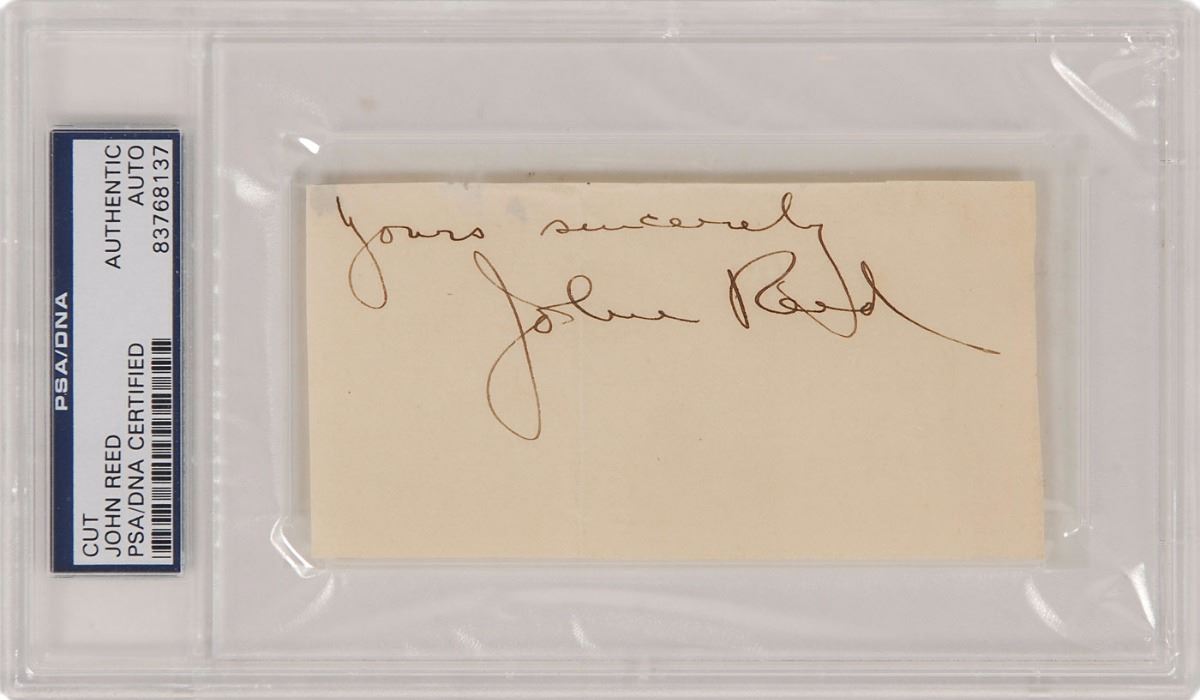 PSA/DNA
CUT
JOHN REED
PSA/DNA CERTIFIED
AUTHENTIC
AUTO
83768137
Yours sincerely
John Reed